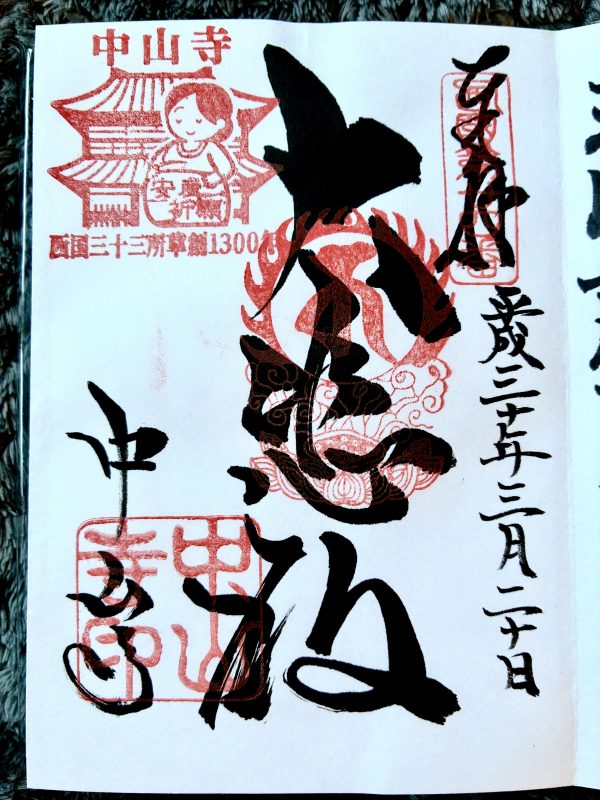 奉拝
平成三十年三月二十日
大悲殿
中山寺
安産
祈願
西国三十三所草創1300年
中山寺
中山
寺印